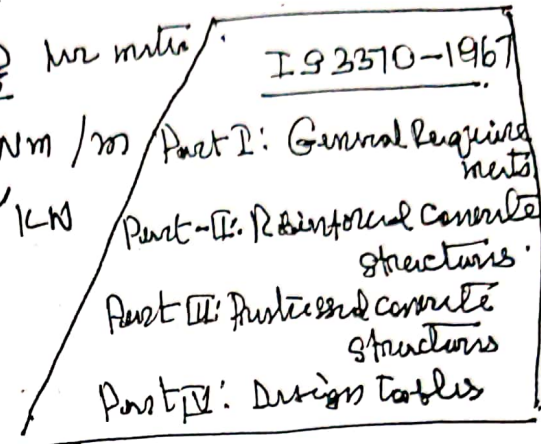 per metre
IS 3370-1967
Nm/m
Part I: General Require
ments
KN
Part-II: Reinforced Concrete
structures.
Part III: Prestressed concrete
structures
Part IV: Design Tables